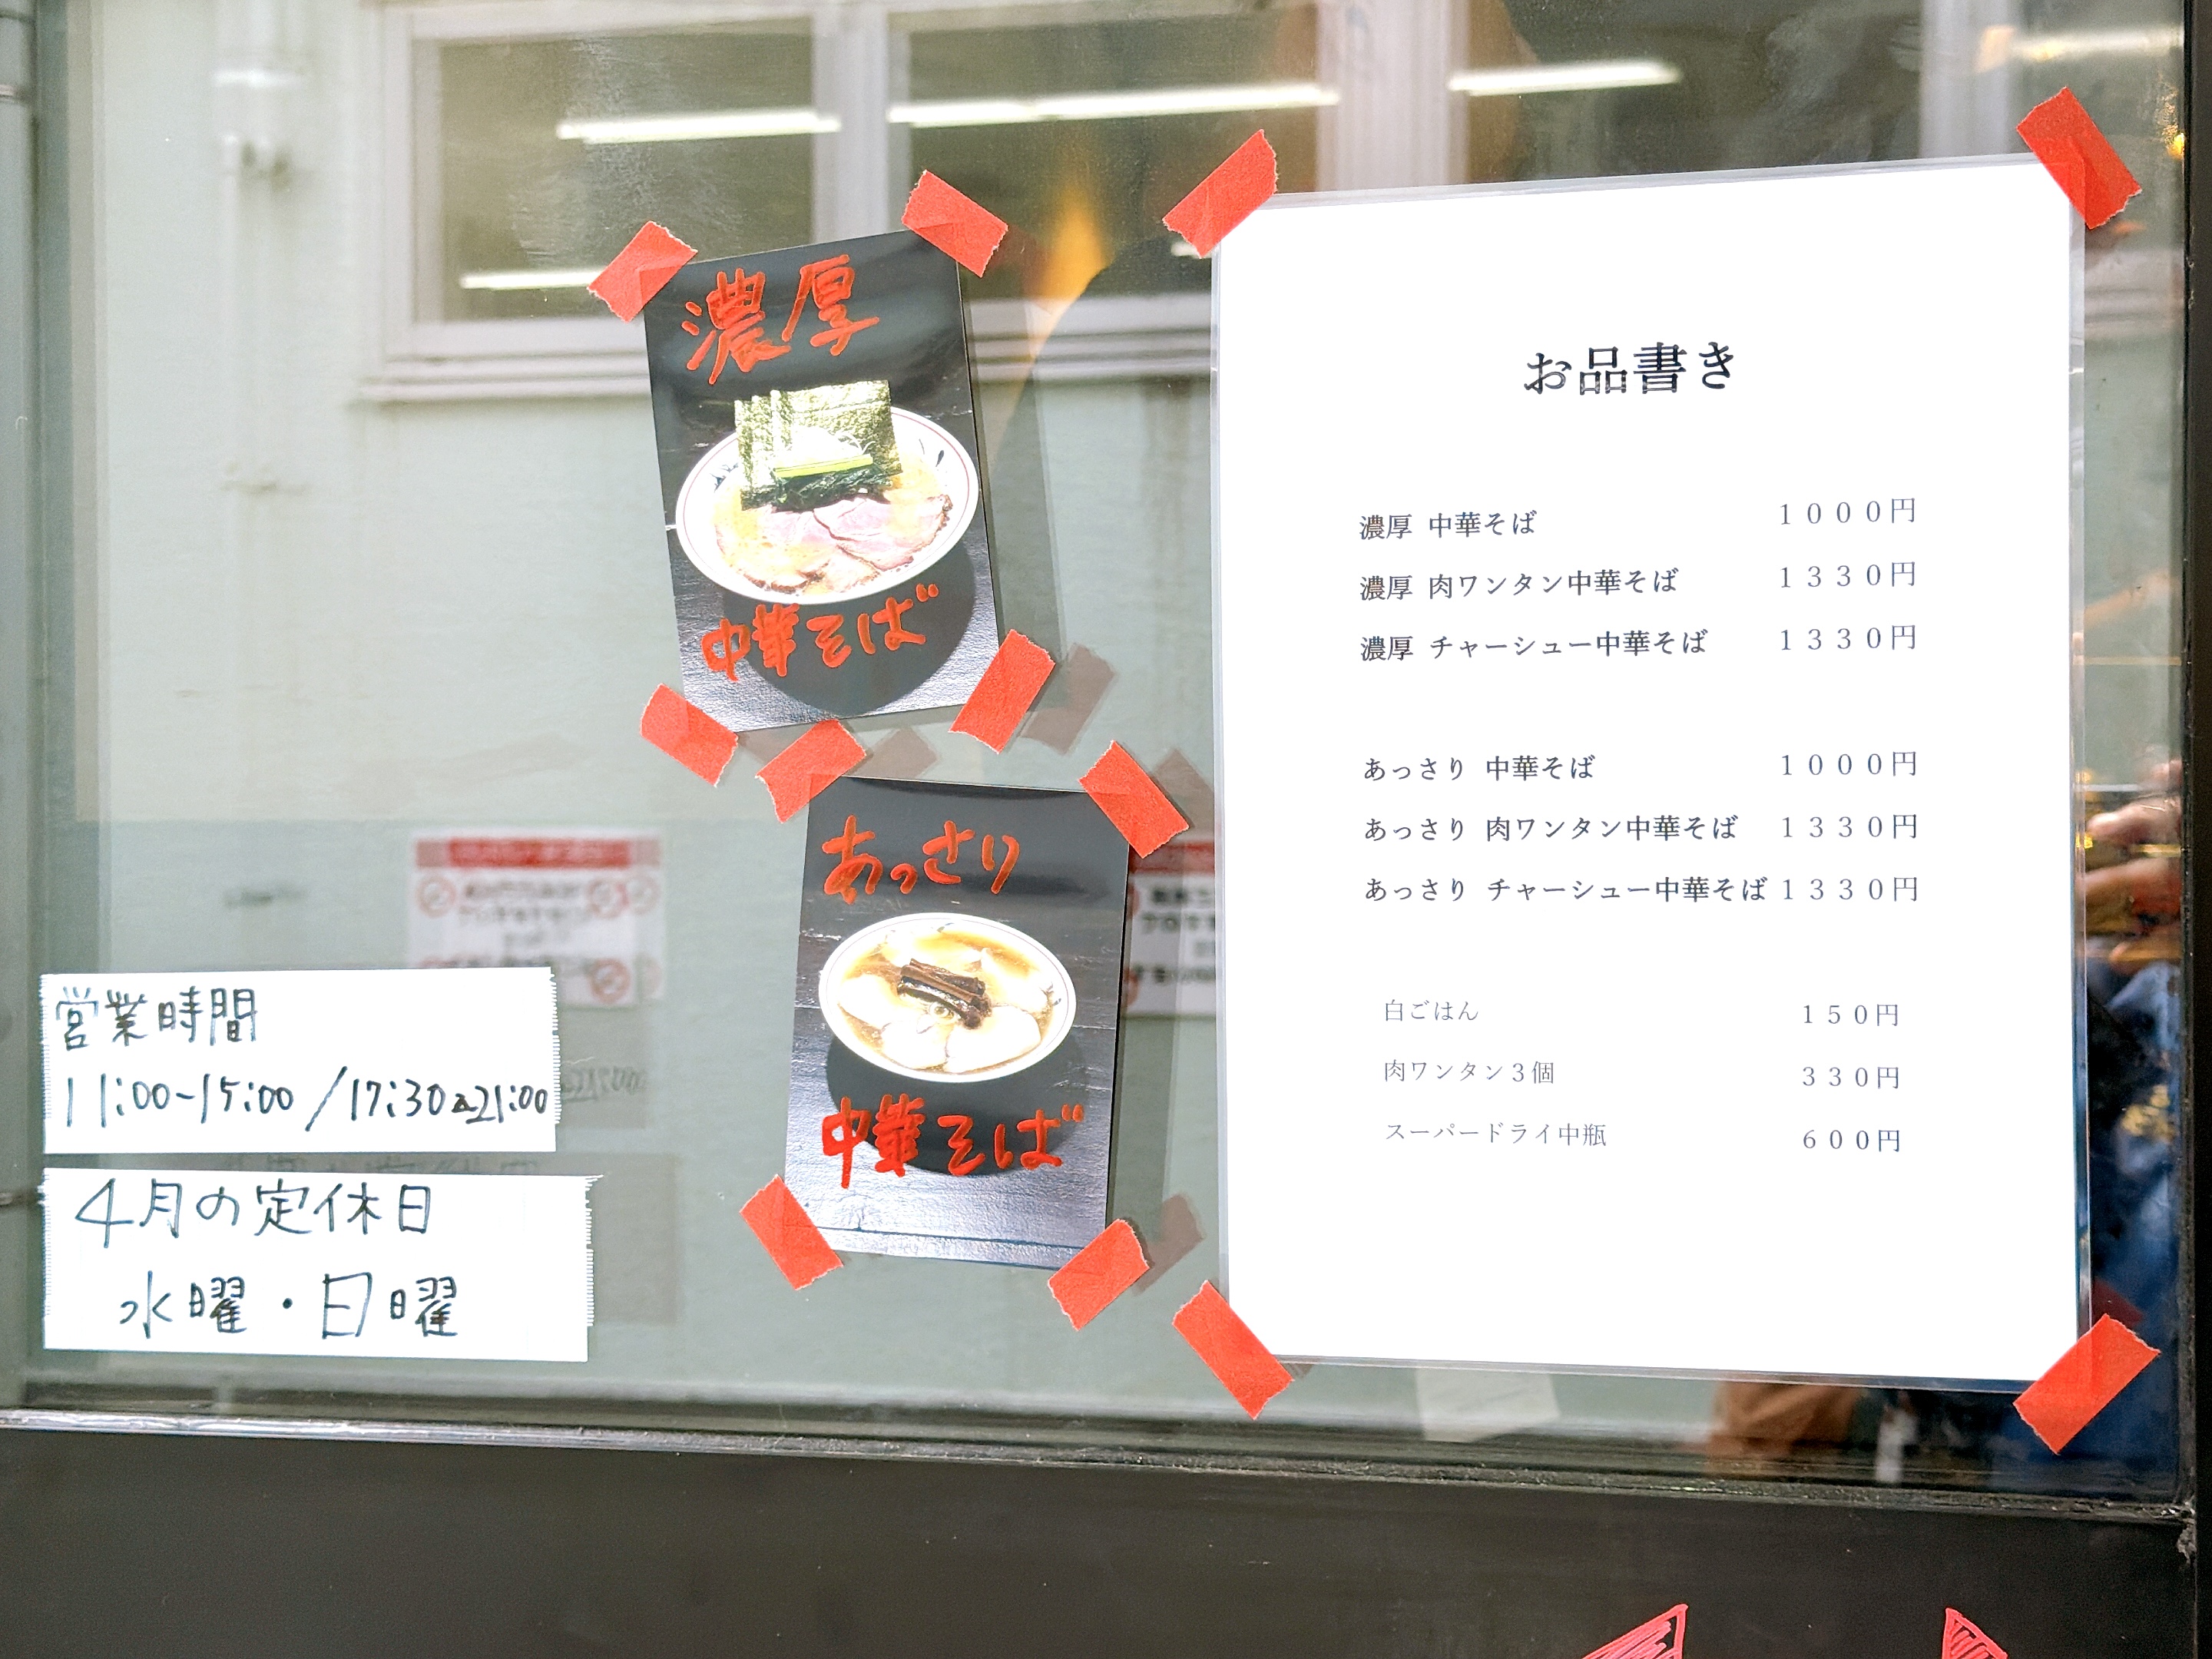 濃厚
中華そば
あっさり
中華そば
営業時間
11:00-15:00 /17:30~21:00
4月の定休日
水曜・日曜
お品書き
濃厚 中華そば 1000円
濃厚 肉ワンタン中華そば 1330円
濃厚 チャーシュー中華そば 1330円
あっさり 中華そば 1000円
あっさり 肉ワンタン中華そば 1330円
あっさり チャーシュー中華そば 1330円
白ごはん 150円
肉ワンタン3個 330円
スーパードライ中瓶 600円